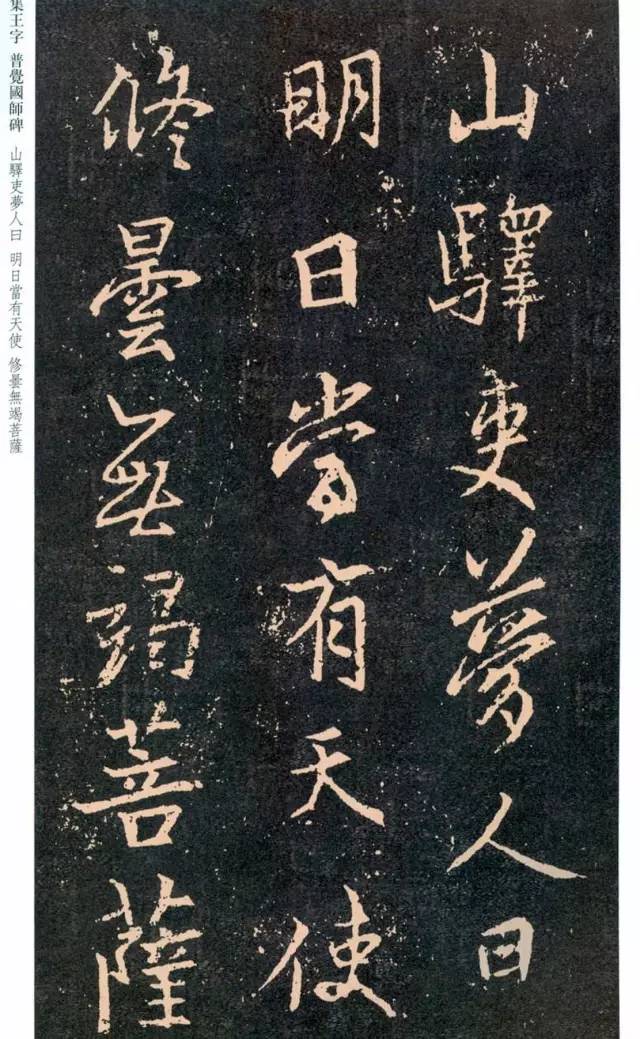 山驛吏夢人曰
明日當有天使
修曇無竭菩薩
集王字 普覺國師碑 山驛吏夢人曰 明日當有天使 修曇無竭菩薩